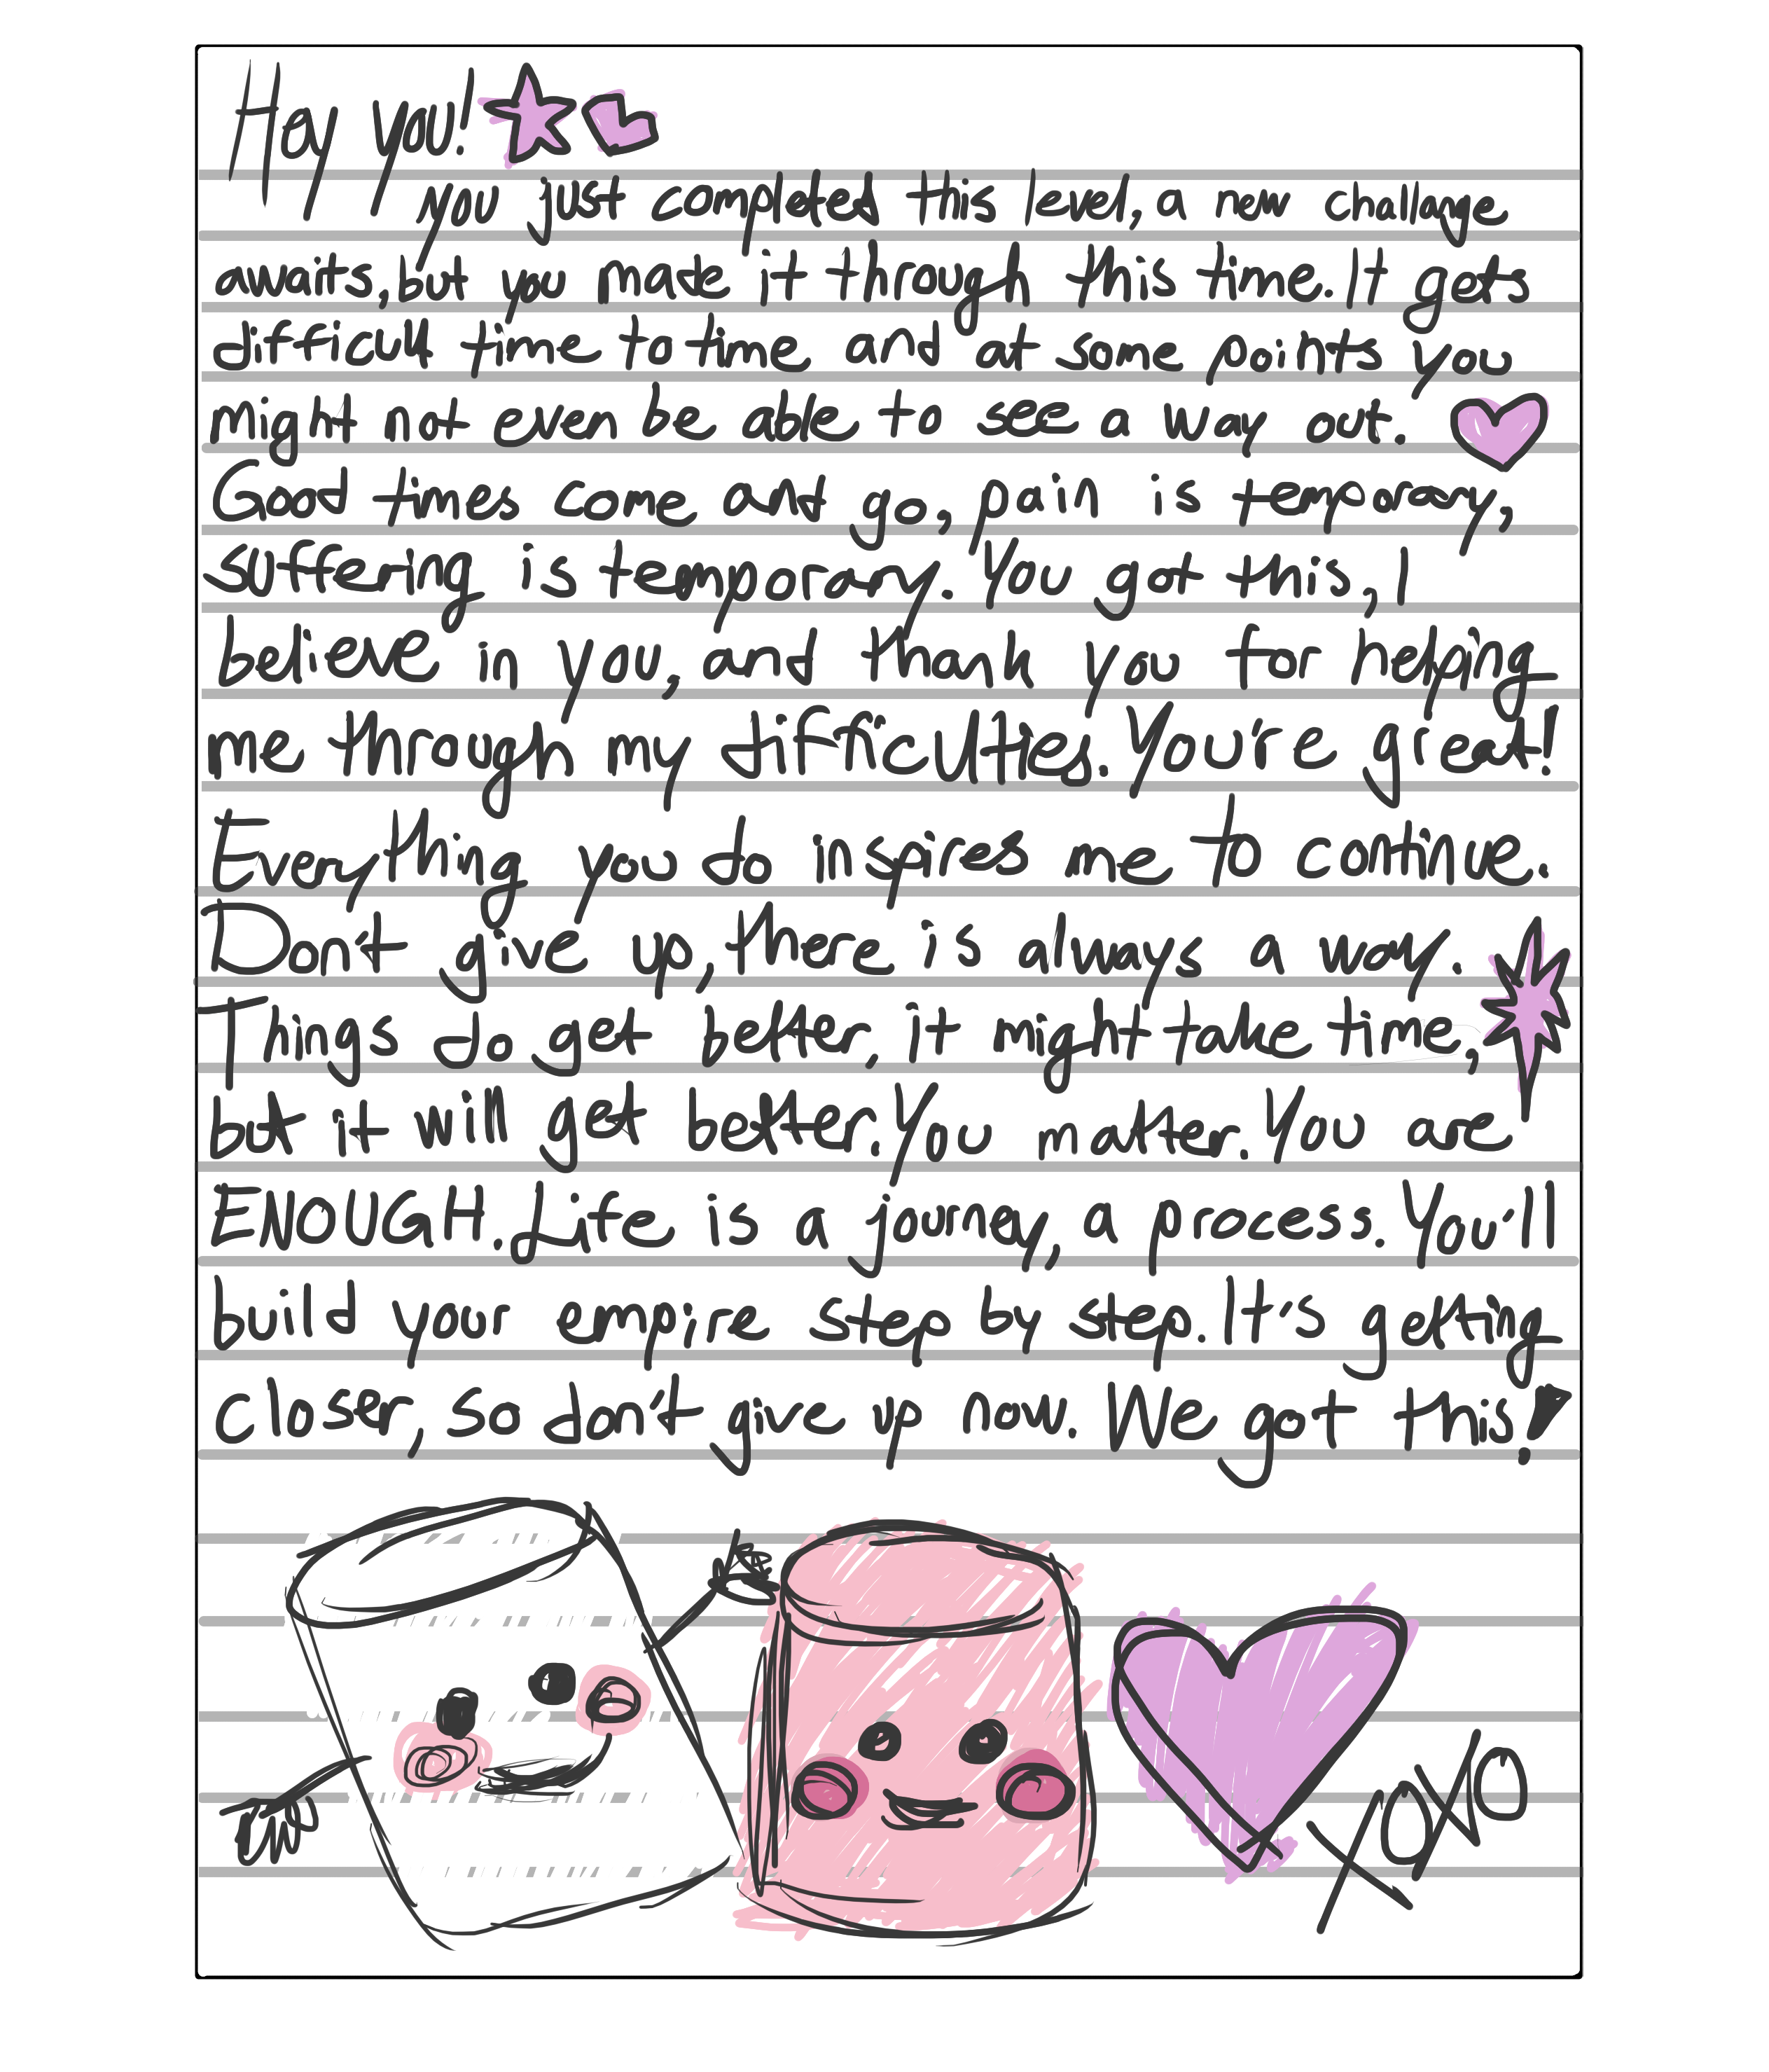 Hey you!
You just completed this level, a new challange
awaits, but you made it through this time. It gets
difficult time to time and at some points you
might not even be able to see a way out.
Good times come and go, pain is temporary,
suffering is temporary. You got this, I
believe in you, and thank you for helping
me through my difficulties. You're great!
Everything you do inspires me to continue.
Don't give up, there is always a way.
Things do get better, it might take time,
but it will get better. You matter. You are
ENOUGH. Life is a journey, a process. You'll
build your empire step by step. It's getting
closer, so don't give up now. We got this!
XOXO